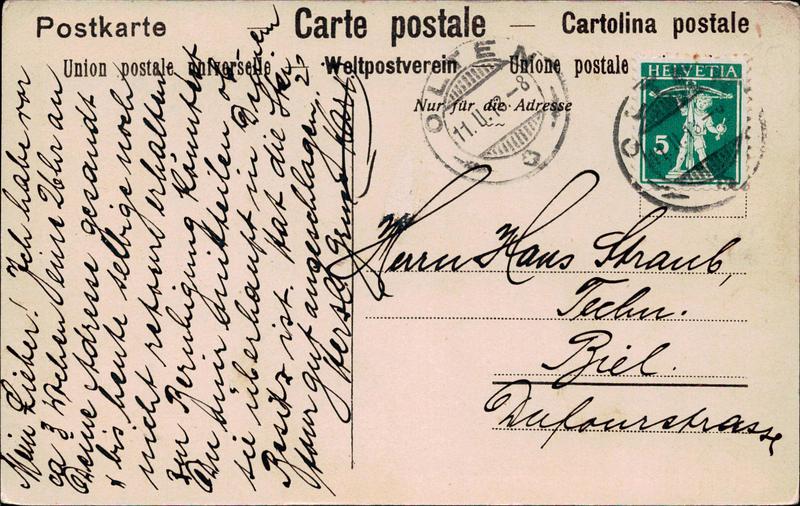 Postkarte — Carte postale — Cartolina postale
Union postale universelle — Weltpostverein — Unione postale
Nur für die Adresse
OLTEN
11. II. 12 - 8
HELVETIA
5
Herrn Hans Straub,
Techn.
Biel.
Dufourstrasse
Mein Lieber! Ich habe vor
ca 3 Wochen eine Uhr an
Deine Adresse gesandt
& bis heute selbige noch
nicht retour erhalten
zur Beruhigung könntest
Du mir mitteilen ob
sie überhaupt in Deinem
Besitz ist. Hat die Ski-
tour gut angeschlagen?
herzl. Gruss Karl